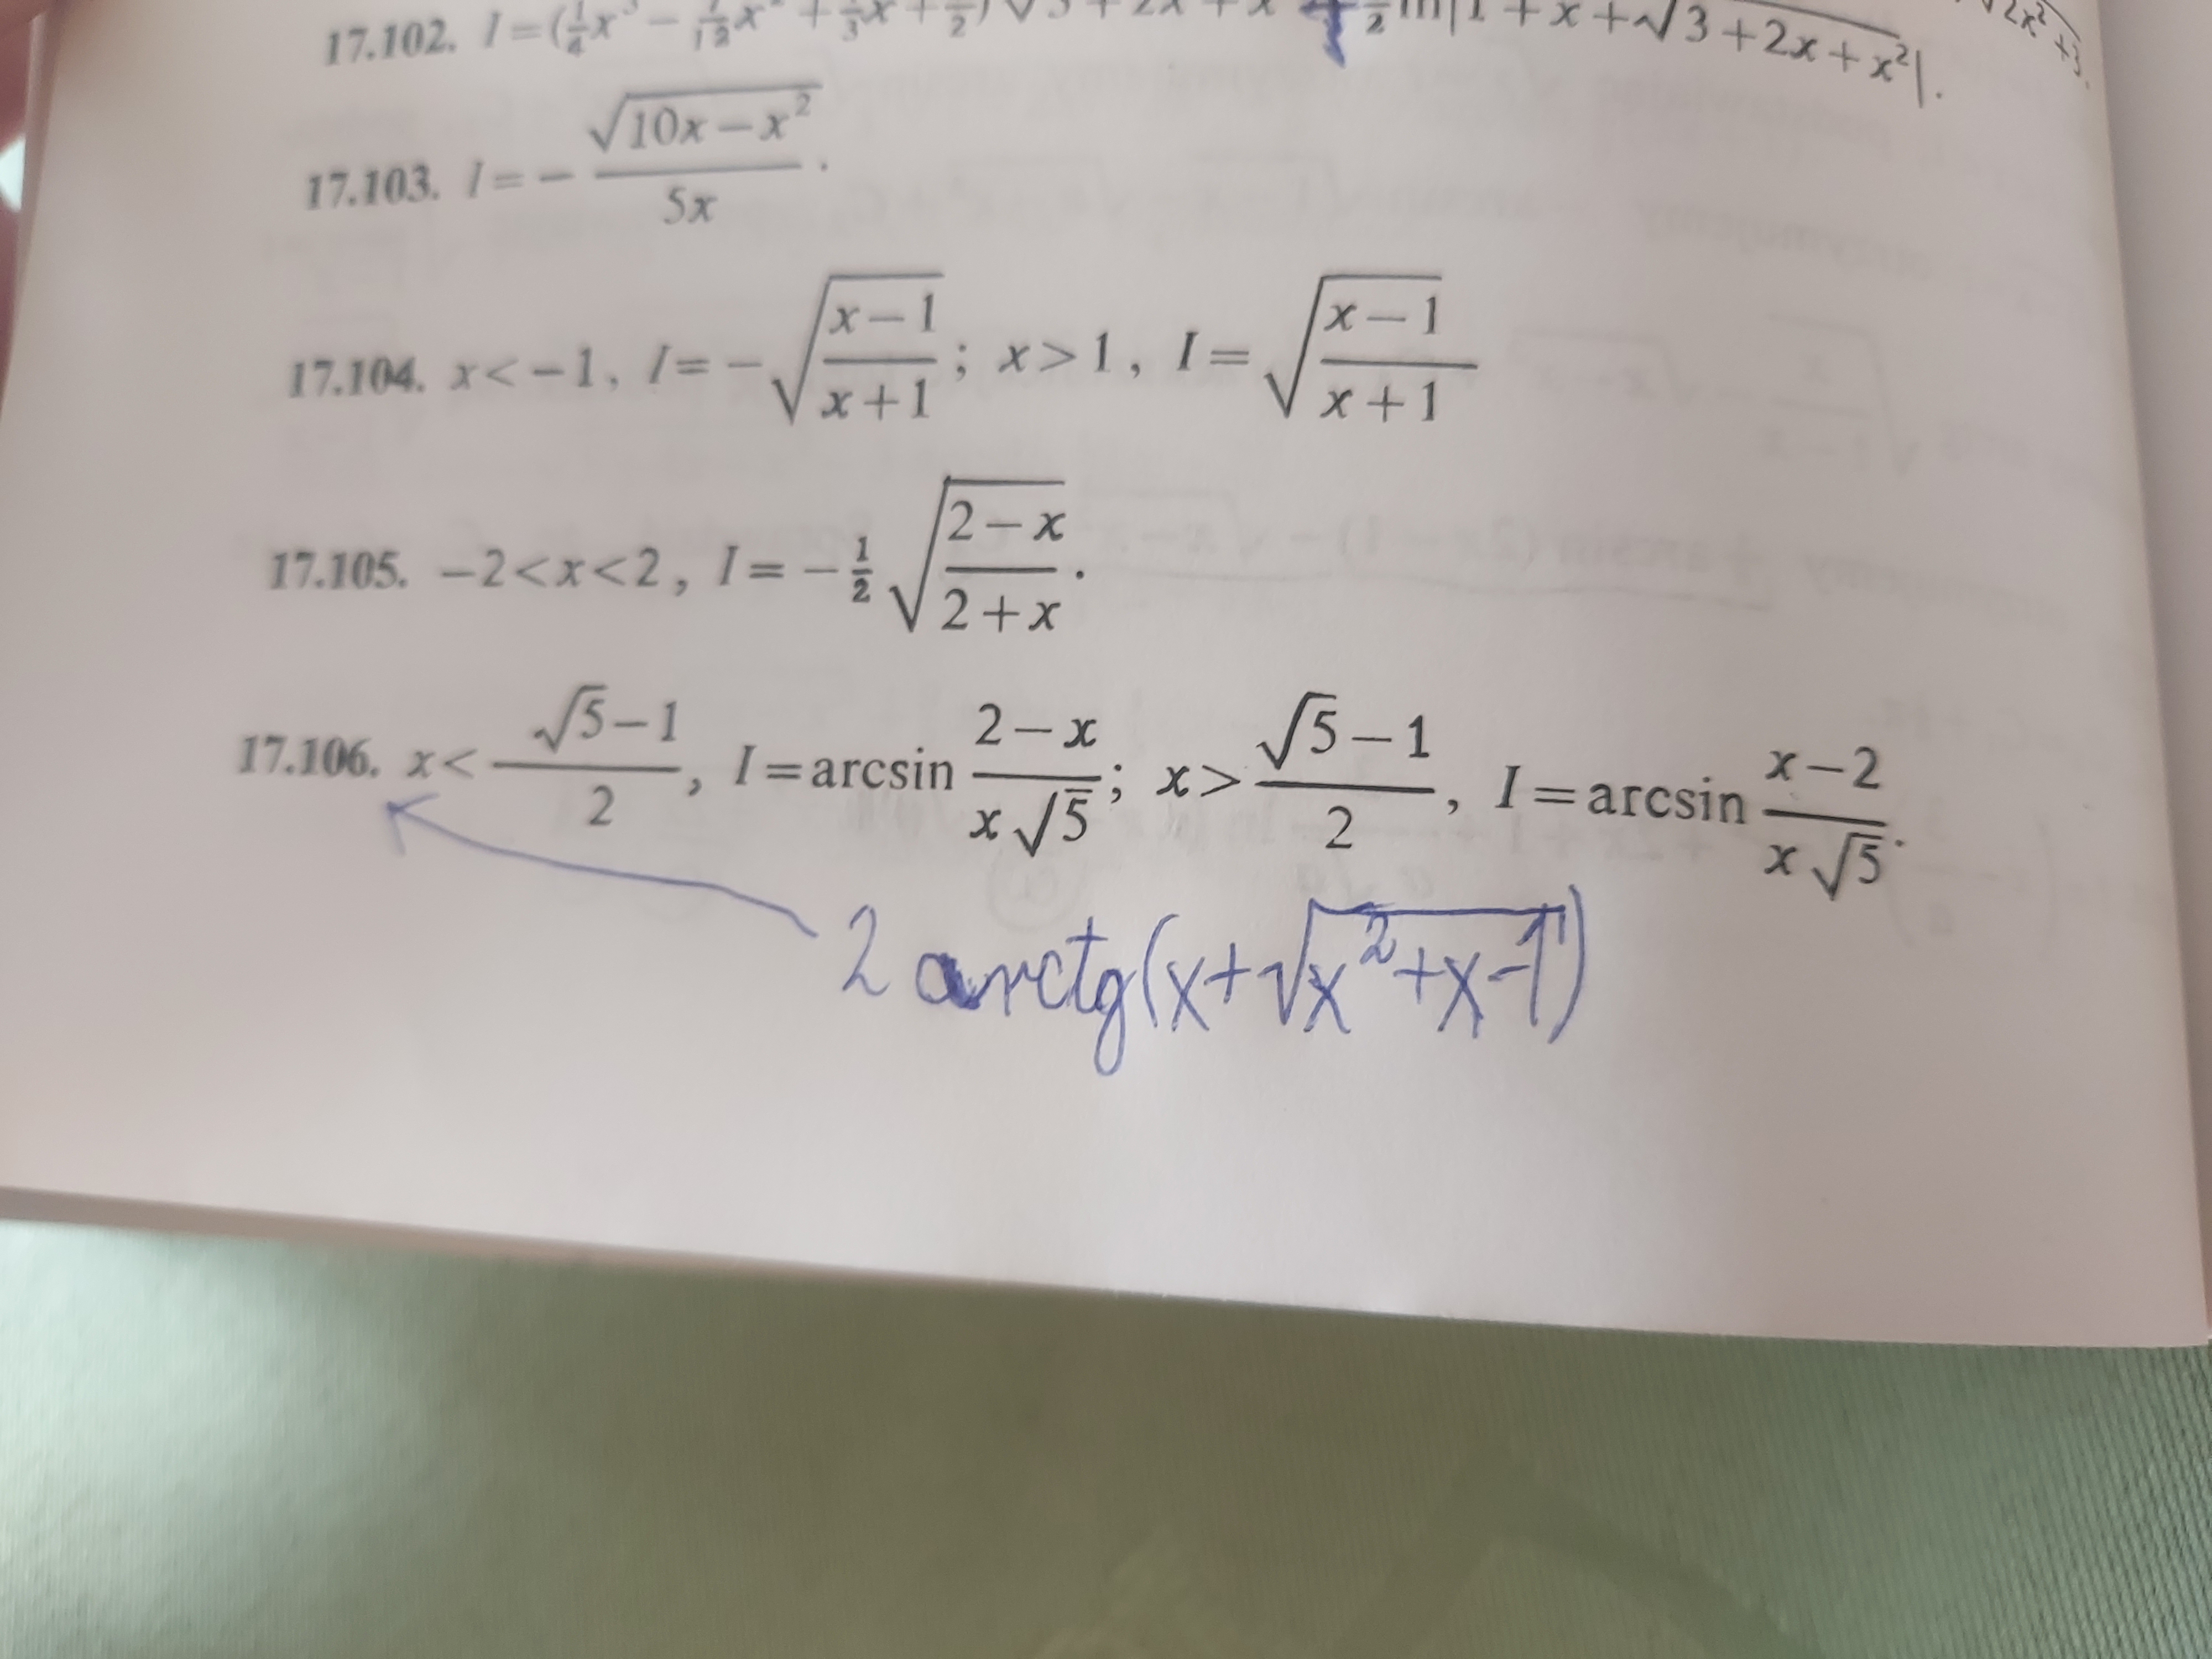 17.102. I=(¼x³ − x² + ⅓x + ½)√3+2x+x² ½ ln|1+x+√3+2x+x²|.
17.103. I= − √10x−x² / 5x .
17.104. x<−1, I= −√(x−1)/(x+1) ; x>1, I= √(x−1)/(x+1)
17.105. −2<x<2, I= −½ √(2−x)/(2+x) .
17.106. x< (√5−1)/2 , I=arcsin (2−x)/(x√5) ; x> (√5−1)/2 , I=arcsin (x−2)/(x√5) .
2 arctg(x+√x²+x−1)